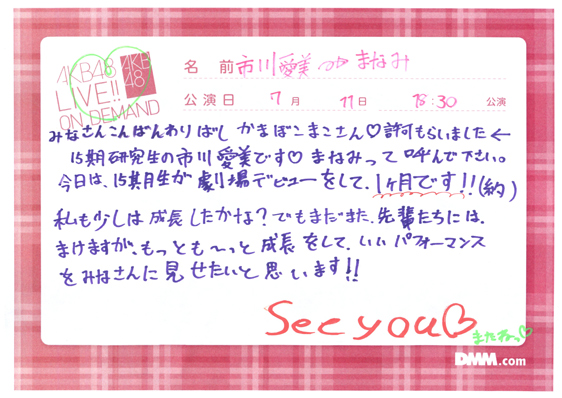 AKB48
LIVE!!
ON DEMAND
AKB
48
名 前 市川愛美 まなみ
公演日 7 月 11 日 18:30 公演
みなさんこんばんわりばし かまぼこまこさん♡許可もらいました←
15期研究生の市川愛美です♡ まなみって 呼んで下さい。
今日は、15期生が 劇場デビューをして、1ヶ月です!!(約)
私も少しは 成長したかな? でもまだまだ、先輩たちには、
まけますが、もっとも〜っと 成長をして、いい パフォーマンス
をみなさんに 見せたいと思います!!
See you♡
またねっ♡
DMM.com